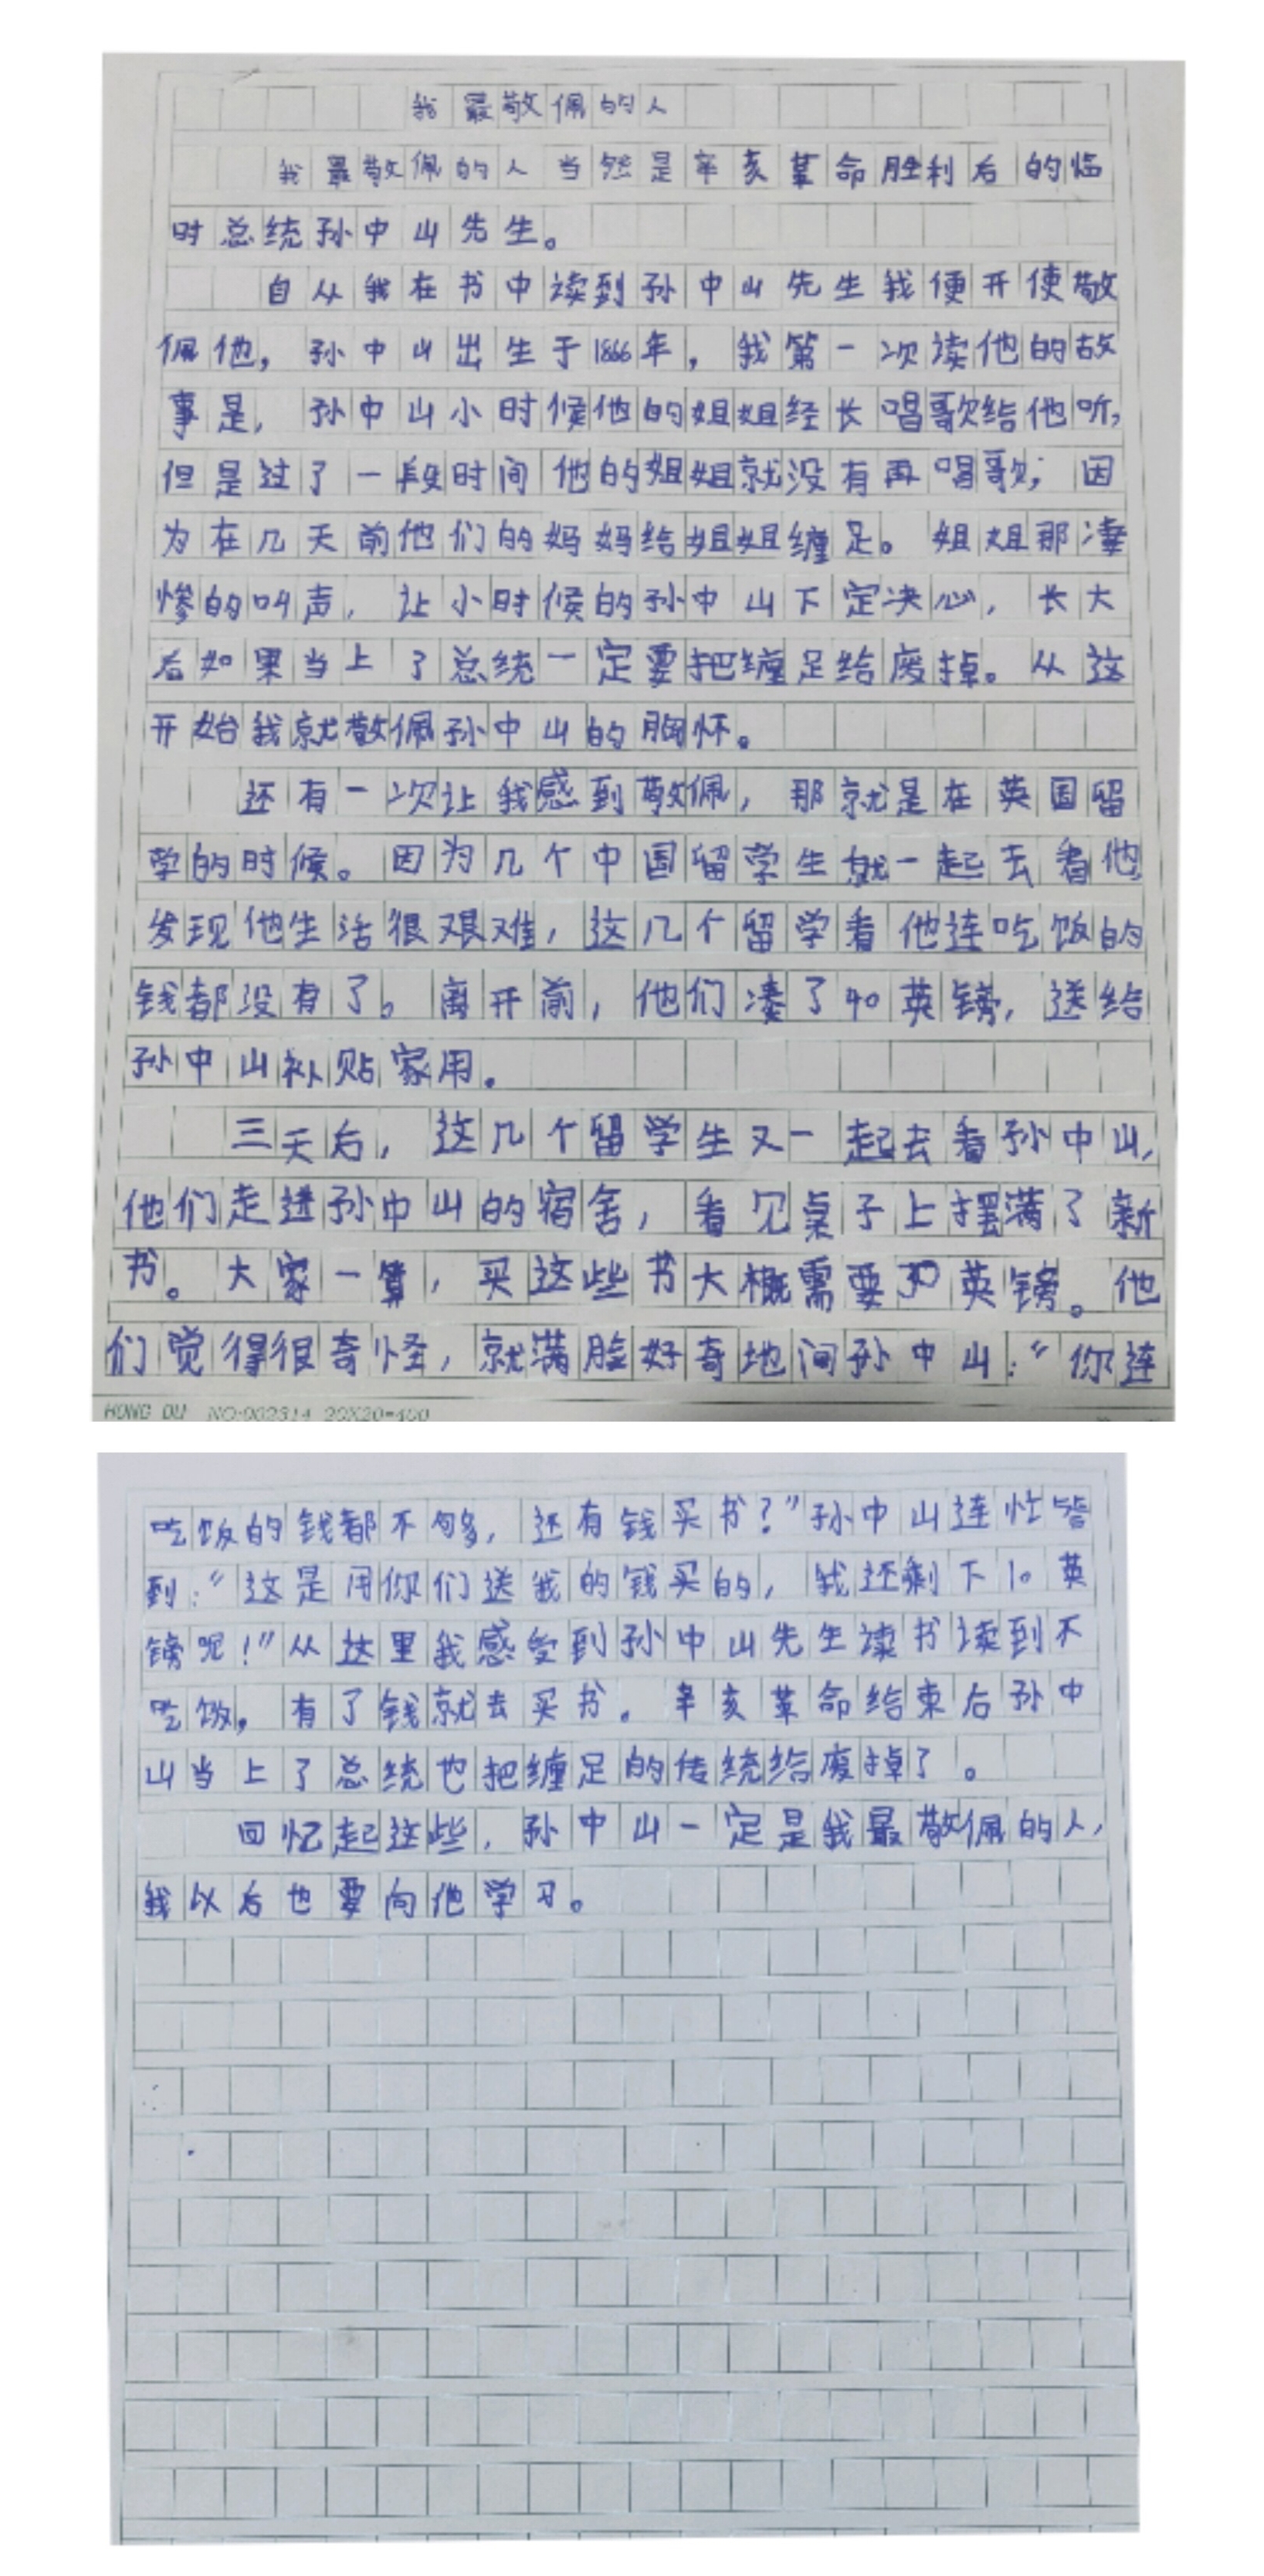 我最敬佩的人
我最敬佩的人当然是辛亥革命胜利后的临
时总统孙中山先生。
自从我在书中读到孙中山先生我便开使敬
佩他，孙中山出生于1866年，我第一次读他的故
事是，孙中山小时候他的姐姐经长唱歌给他听，
但是过了一段时间他的姐姐就没有再唱歌，因
为在几天前他们的妈妈给姐姐缠足。姐姐那凄
惨的叫声，让小时候的孙中山下定决心，长大
后如果当上了总统一定要把缠足给废掉。从这
开始我就敬佩孙中山的胸怀。
还有一次让我感到敬佩，那就是在英国留
学的时候。因为几个中国留学生就一起去看他
发现他生活很艰难，这几个留学看他连吃饭的
钱都没有了。离开前，他们凑了40英镑，送给
孙中山补贴家用。
三天后，这几个留学生又一起去看孙中山，
他们走进孙中山的宿舍，看见桌子上摆满了新
书。大家一算，买这些书大概需要30英镑。他
们觉得很奇怪，就满脸好奇地问孙中山：“你连
HONG DU NO:002314 20X20=400
吃饭的钱都不够，还有钱买书？”孙中山连忙答
到：“这是用你们送我的钱买的，我还剩下10英
镑呢！”从这里我感受到孙中山先生读书读到不
吃饭，有了钱就去买书。辛亥革命结束后孙中
山当上了总统也把缠足的传统给废掉了。
回忆起这些，孙中山一定是我最敬佩的人，
我以后也要向他学习。